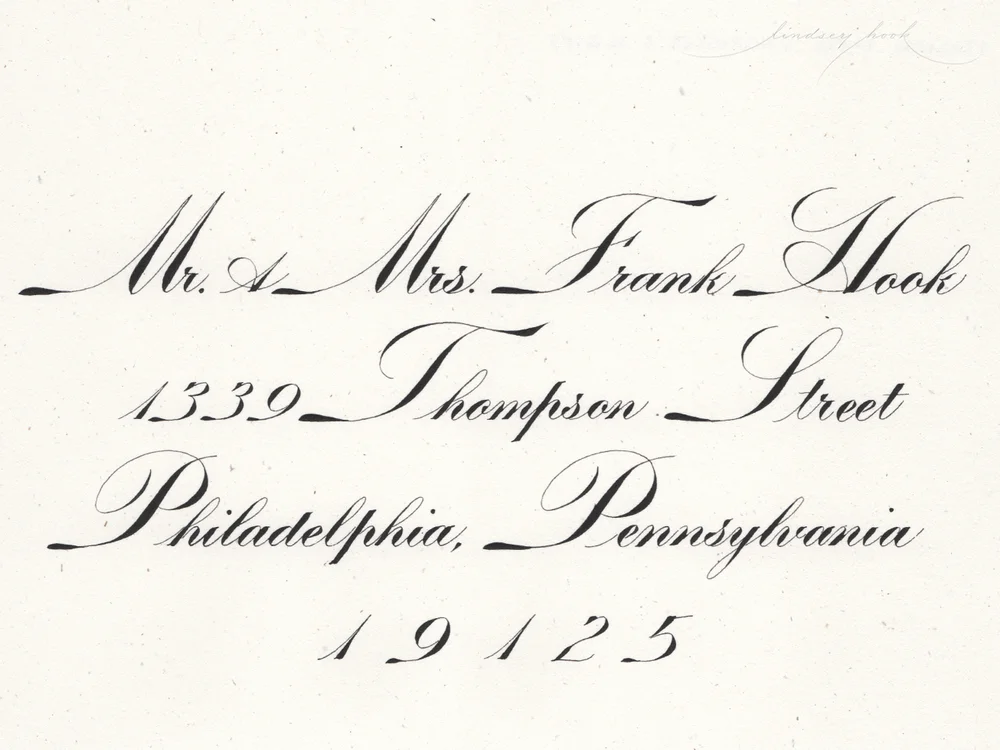 lindsey hook
Mr. & Mrs. Frank Hook
1339 Thompson Street
Philadelphia, Pennsylvania
19125